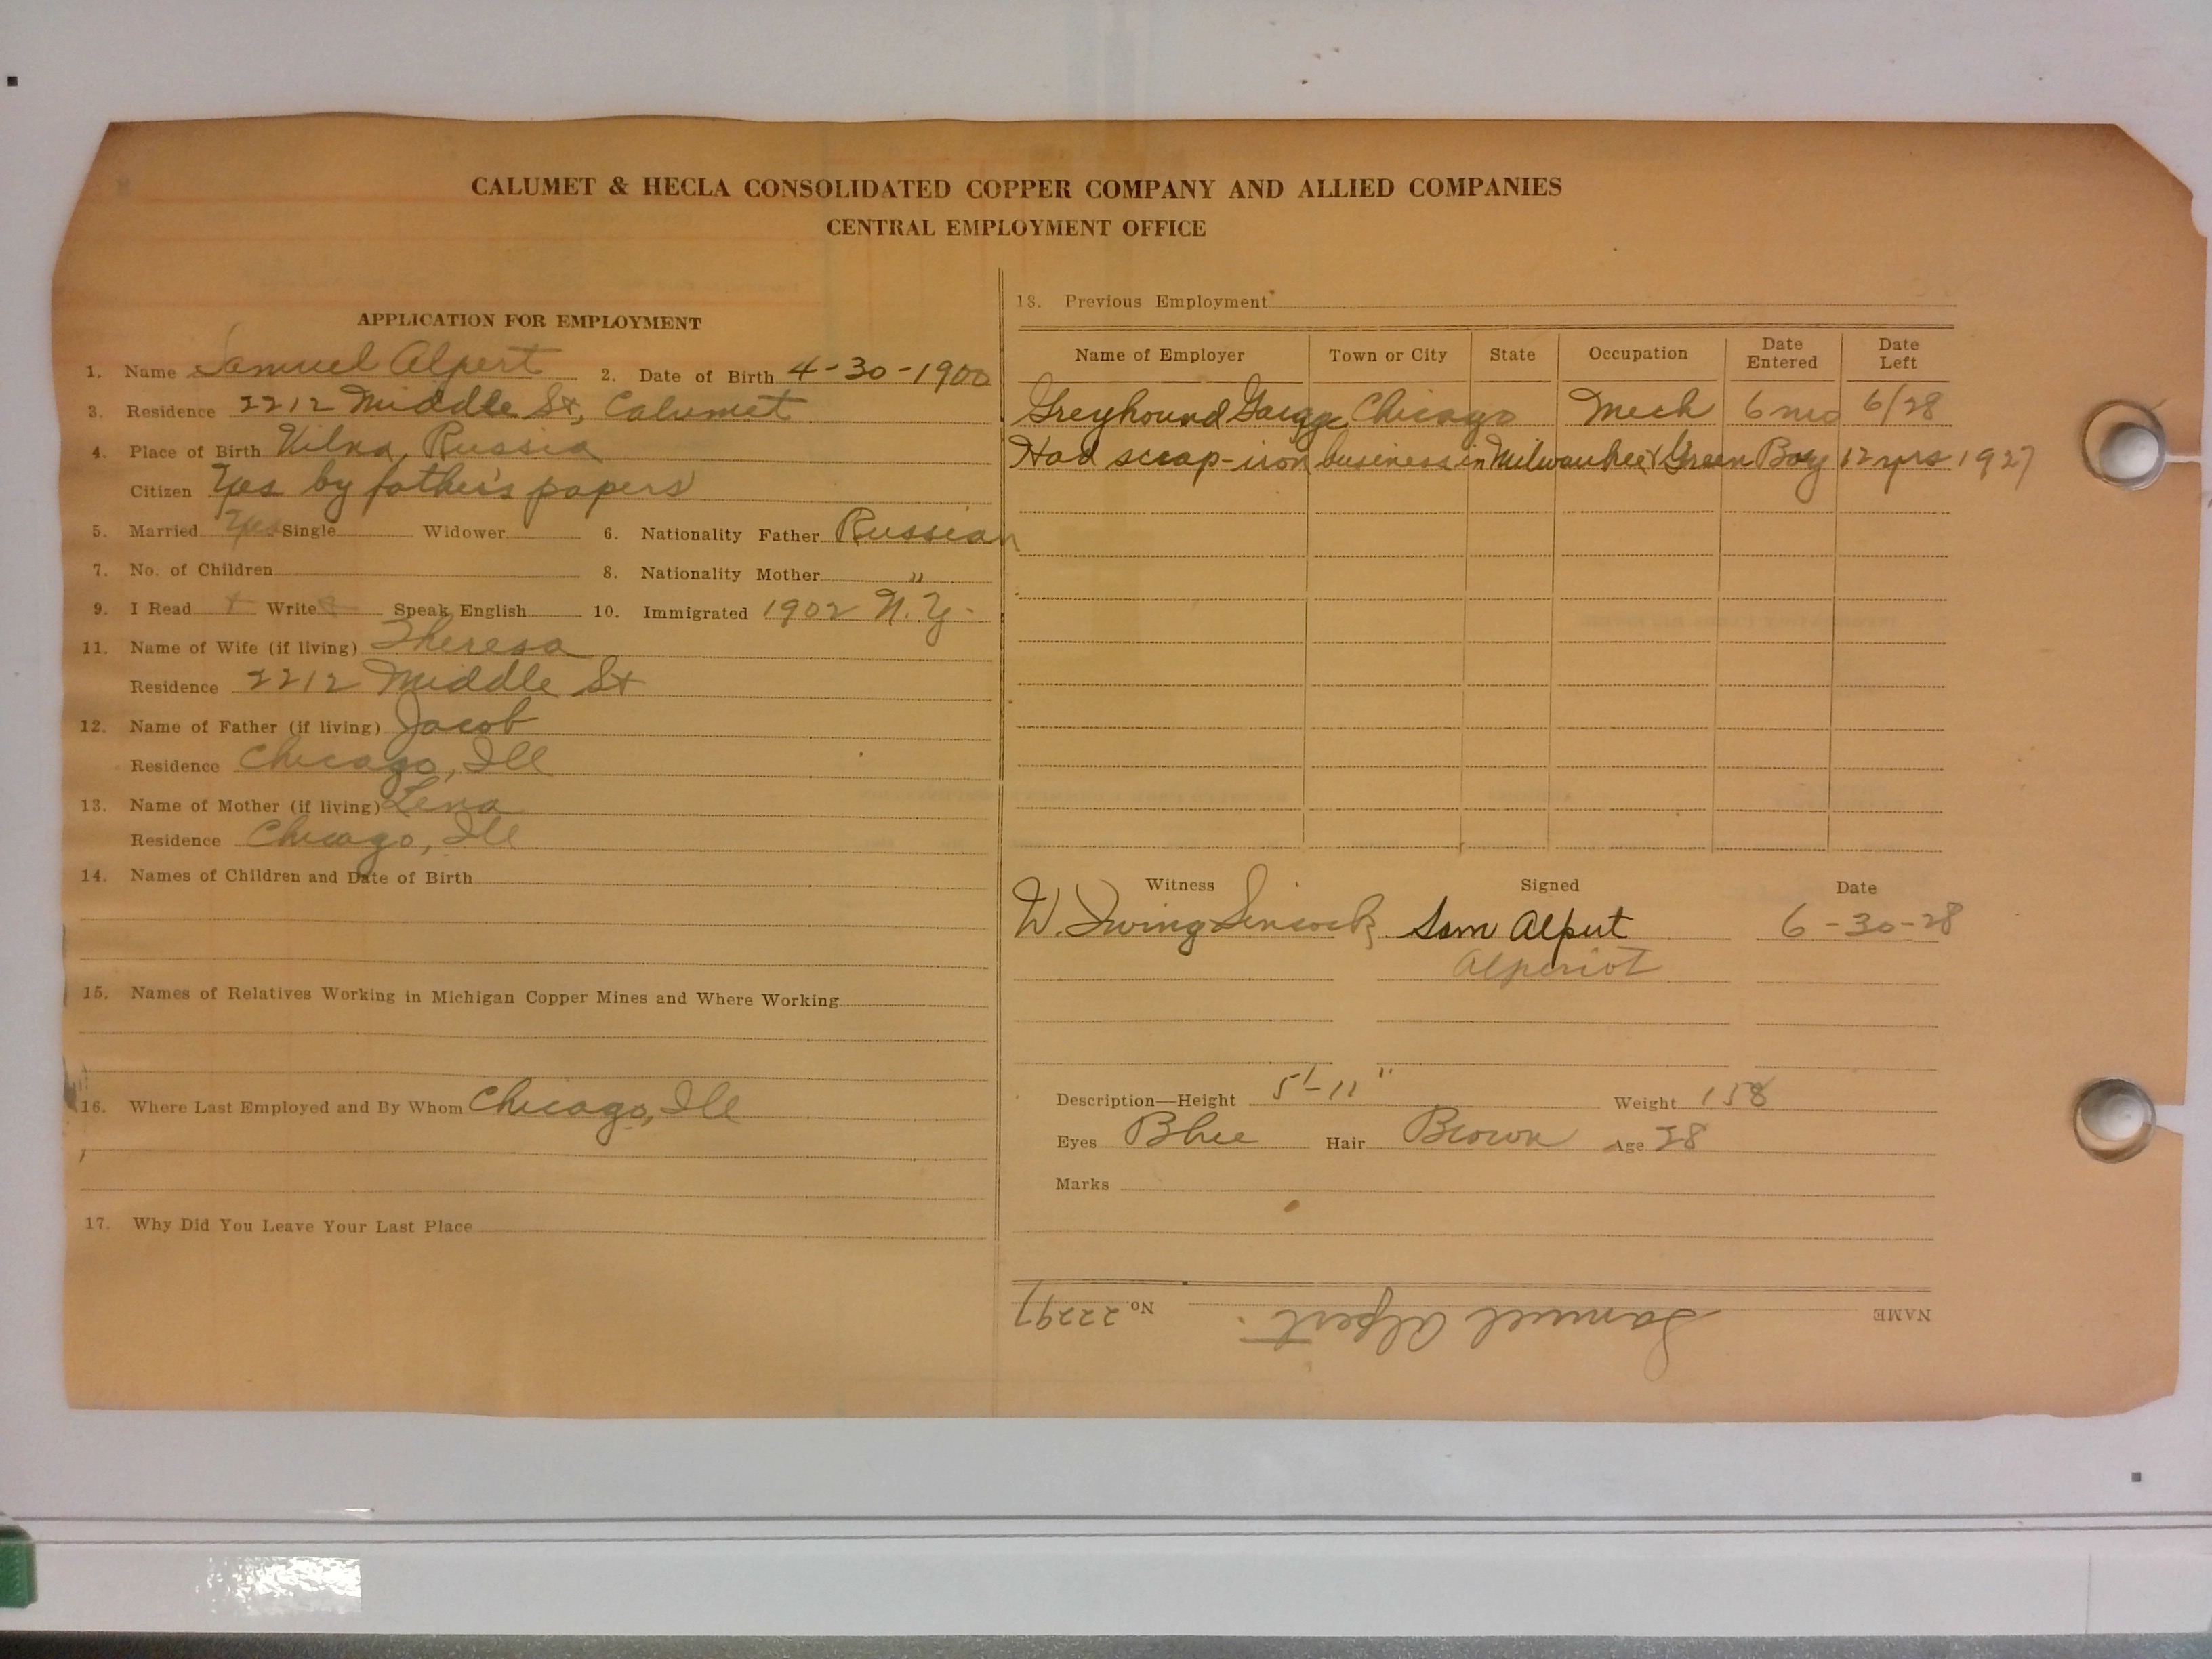 CALUMET & HECLA CONSOLIDATED COPPER COMPANY AND ALLIED COMPANIES
CENTRAL EMPLOYMENT OFFICE
APPLICATION FOR EMPLOYMENT
1. Name Samuel Alpert 2. Date of Birth 4-30-1900
3. Residence 2212 Middle St, Calumet
4. Place of Birth Vilna, Russia
Citizen Yes by father's papers
5. Married Yes Single Widower 6. Nationality Father Russian
7. No. of Children 8. Nationality Mother "
9. I Read Write Speak English 10. Immigrated 1902 N.Y.
11. Name of Wife (if living) Theresa
Residence 2212 Middle St
12. Name of Father (if living) Jacob
Residence Chicago, Ill
13. Name of Mother (if living) Lena
Residence Chicago, Ill
14. Names of Children and Date of Birth
15. Names of Relatives Working in Michigan Copper Mines and Where Working
16. Where Last Employed and By Whom Chicago, Ill
17. Why Did You Leave Your Last Place
18. Previous Employment
Name of Employer Town or City State Occupation Date Entered Date Left
Greyhound Chicago Mech 6 mo 6/28
Had scrap-iron business in Milwaukee & Green Bay 12 yrs 1927
Witness Signed Date
W. Irving Sam Alpert 6-30-28
Description—Height 5'-11" Weight 158
Eyes Blue Hair Brown Age 28
Marks
NAME Samuel Alpert. No. 22297